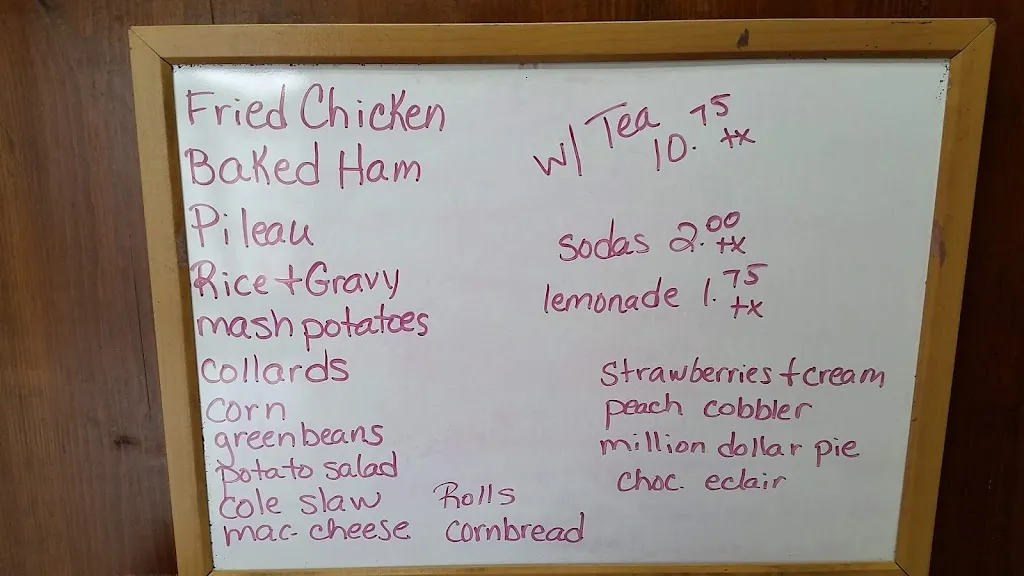 Fried Chicken
Baked Ham
Pileau
Rice + Gravy
mash potatoes
collards
corn
greenbeans
potato salad
cole slaw
mac-cheese
Rolls
cornbread
w/ Tea 10.75 tx
sodas 2.00 tx
lemonade 1.75 tx
strawberries + cream
peach cobbler
million dollar pie
choc. eclair